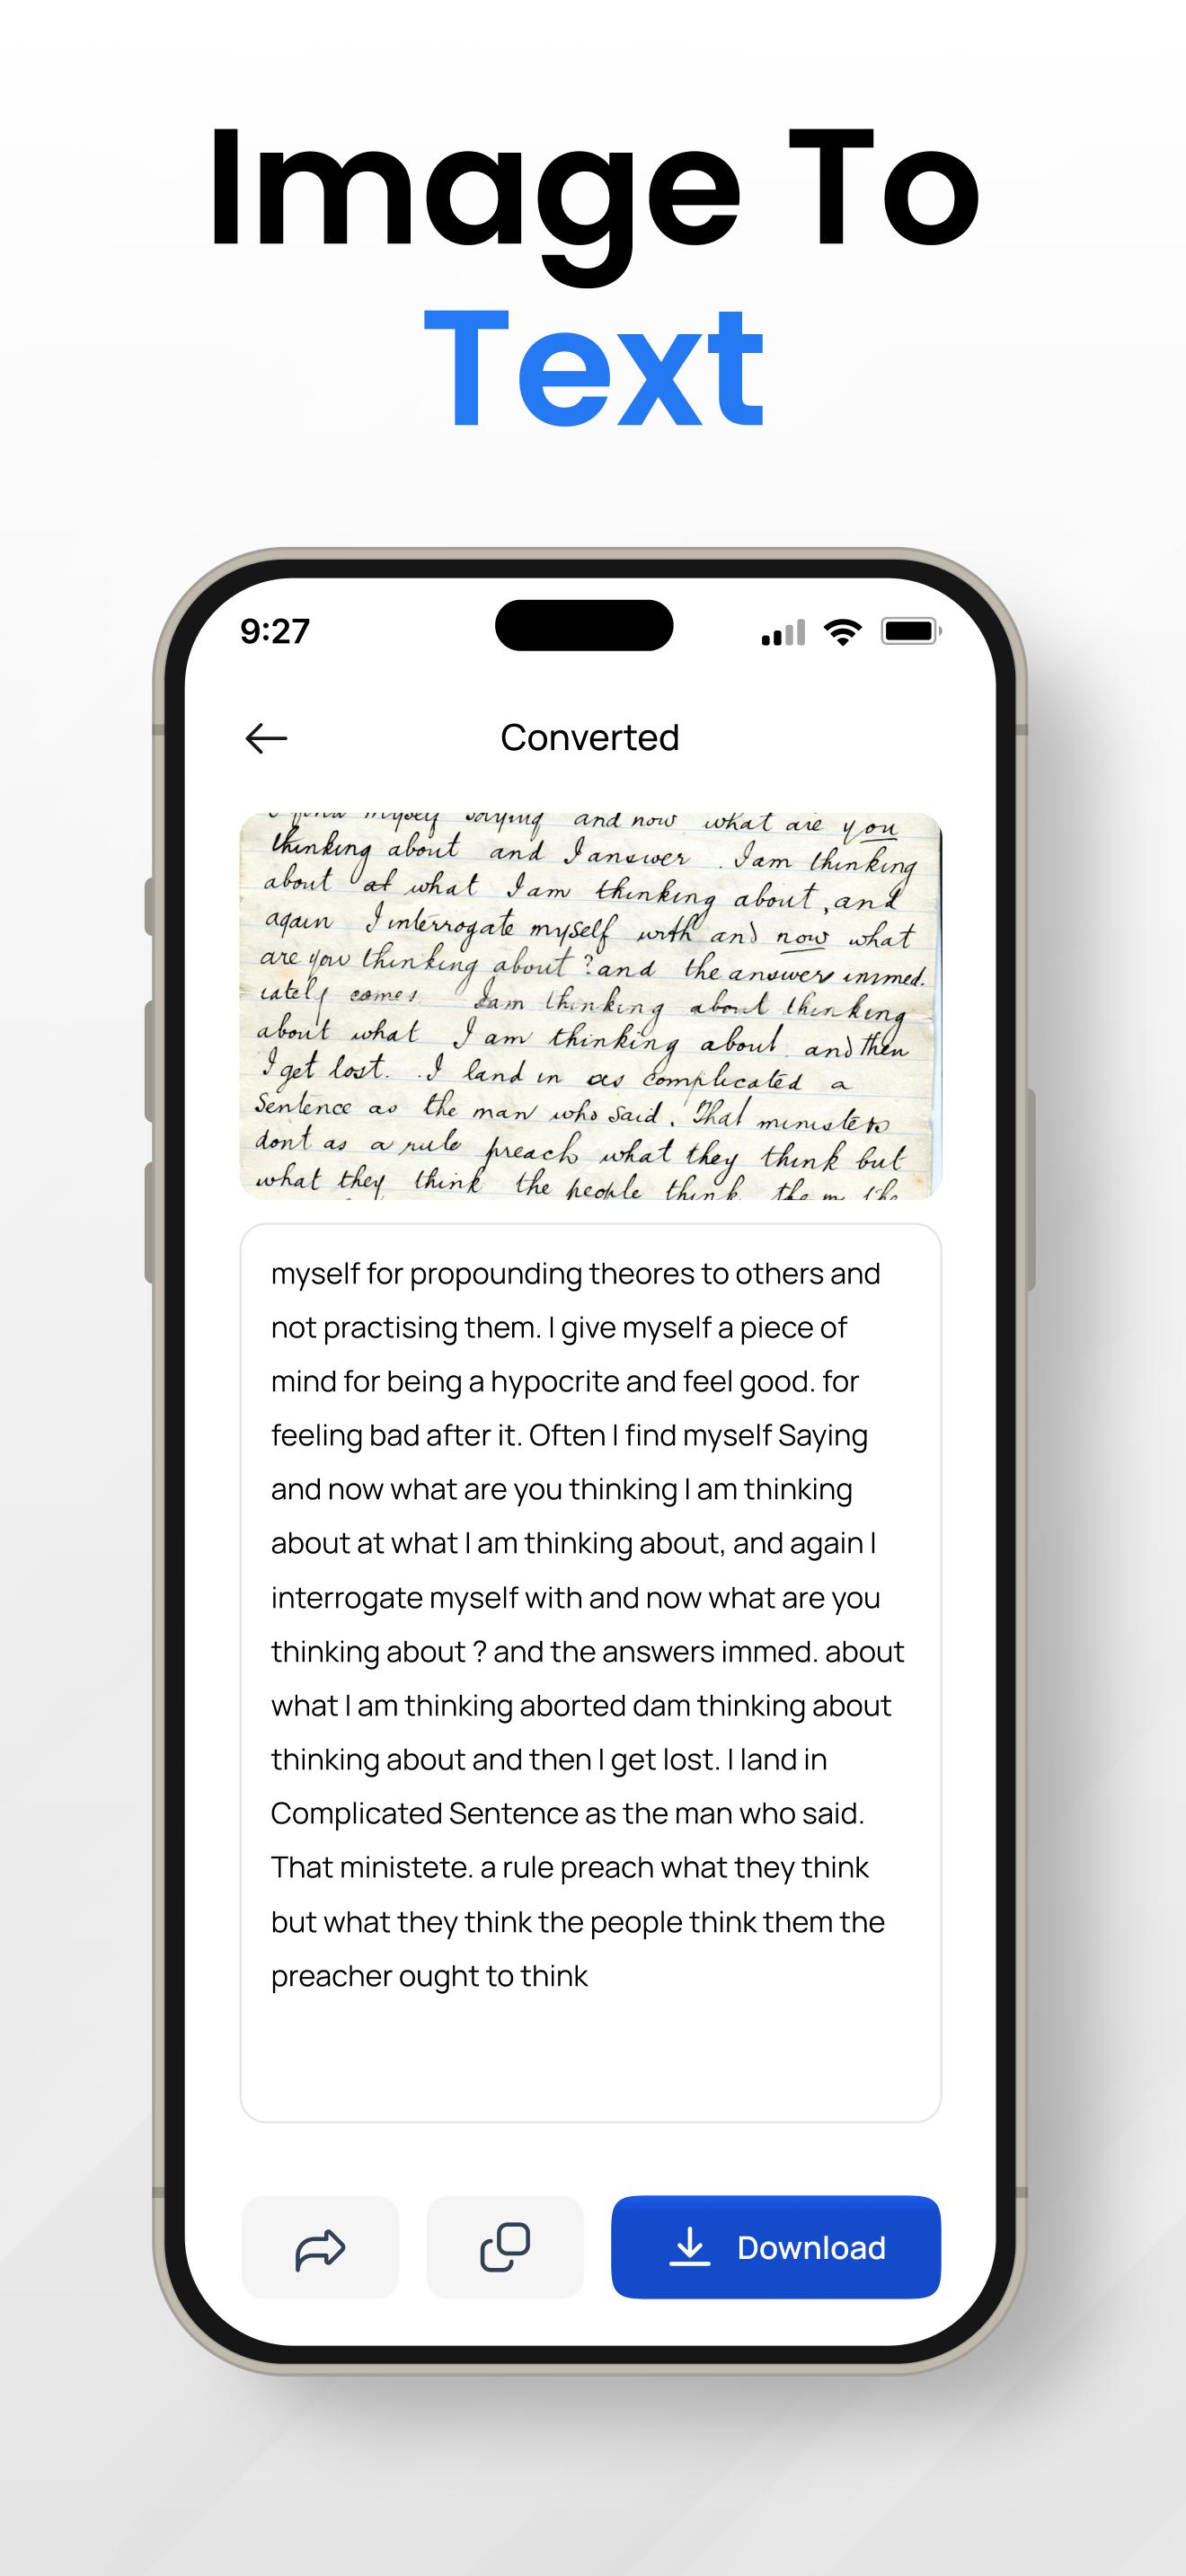 Image To
Text
9:27
Converted
I find myself saying and now what are you
thinking about and I answer . I am thinking
about at what I am thinking about, and
again I interrogate myself with and now what
are you thinking about ? and the answer immed.
iately comes I am thinking about thinking
about what I am thinking about and then
I get lost. . I land in as complicated a
Sentence as the man who said. That ministers
dont as a rule preach what they think but
what they think the people think the
myself for propounding theores to others and
not practising them. I give myself a piece of
mind for being a hypocrite and feel good. for
feeling bad after it. Often I find myself Saying
and now what are you thinking I am thinking
about at what I am thinking about, and again I
interrogate myself with and now what are you
thinking about ? and the answers immed. about
what I am thinking aborted dam thinking about
thinking about and then I get lost. I land in
Complicated Sentence as the man who said.
That ministete. a rule preach what they think
but what they think the people think them the
preacher ought to think
Download